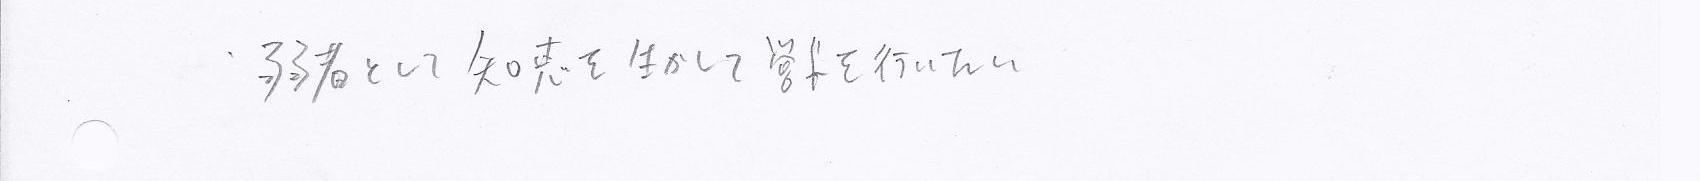 ・弱者として知恵を生かして営業を行いたい